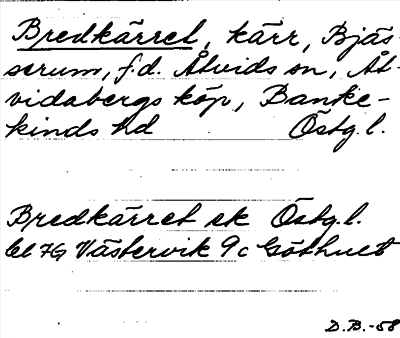 Bredkärret, kärr, Bjäs-
serum, f.d. Åtvids sn, Åt-
vidabergs köp, Banke-
kinds hd Östg.l.
Bredkärret ek Östg.l.
bl 7G Västervik 9c Göthult
D.B.-58